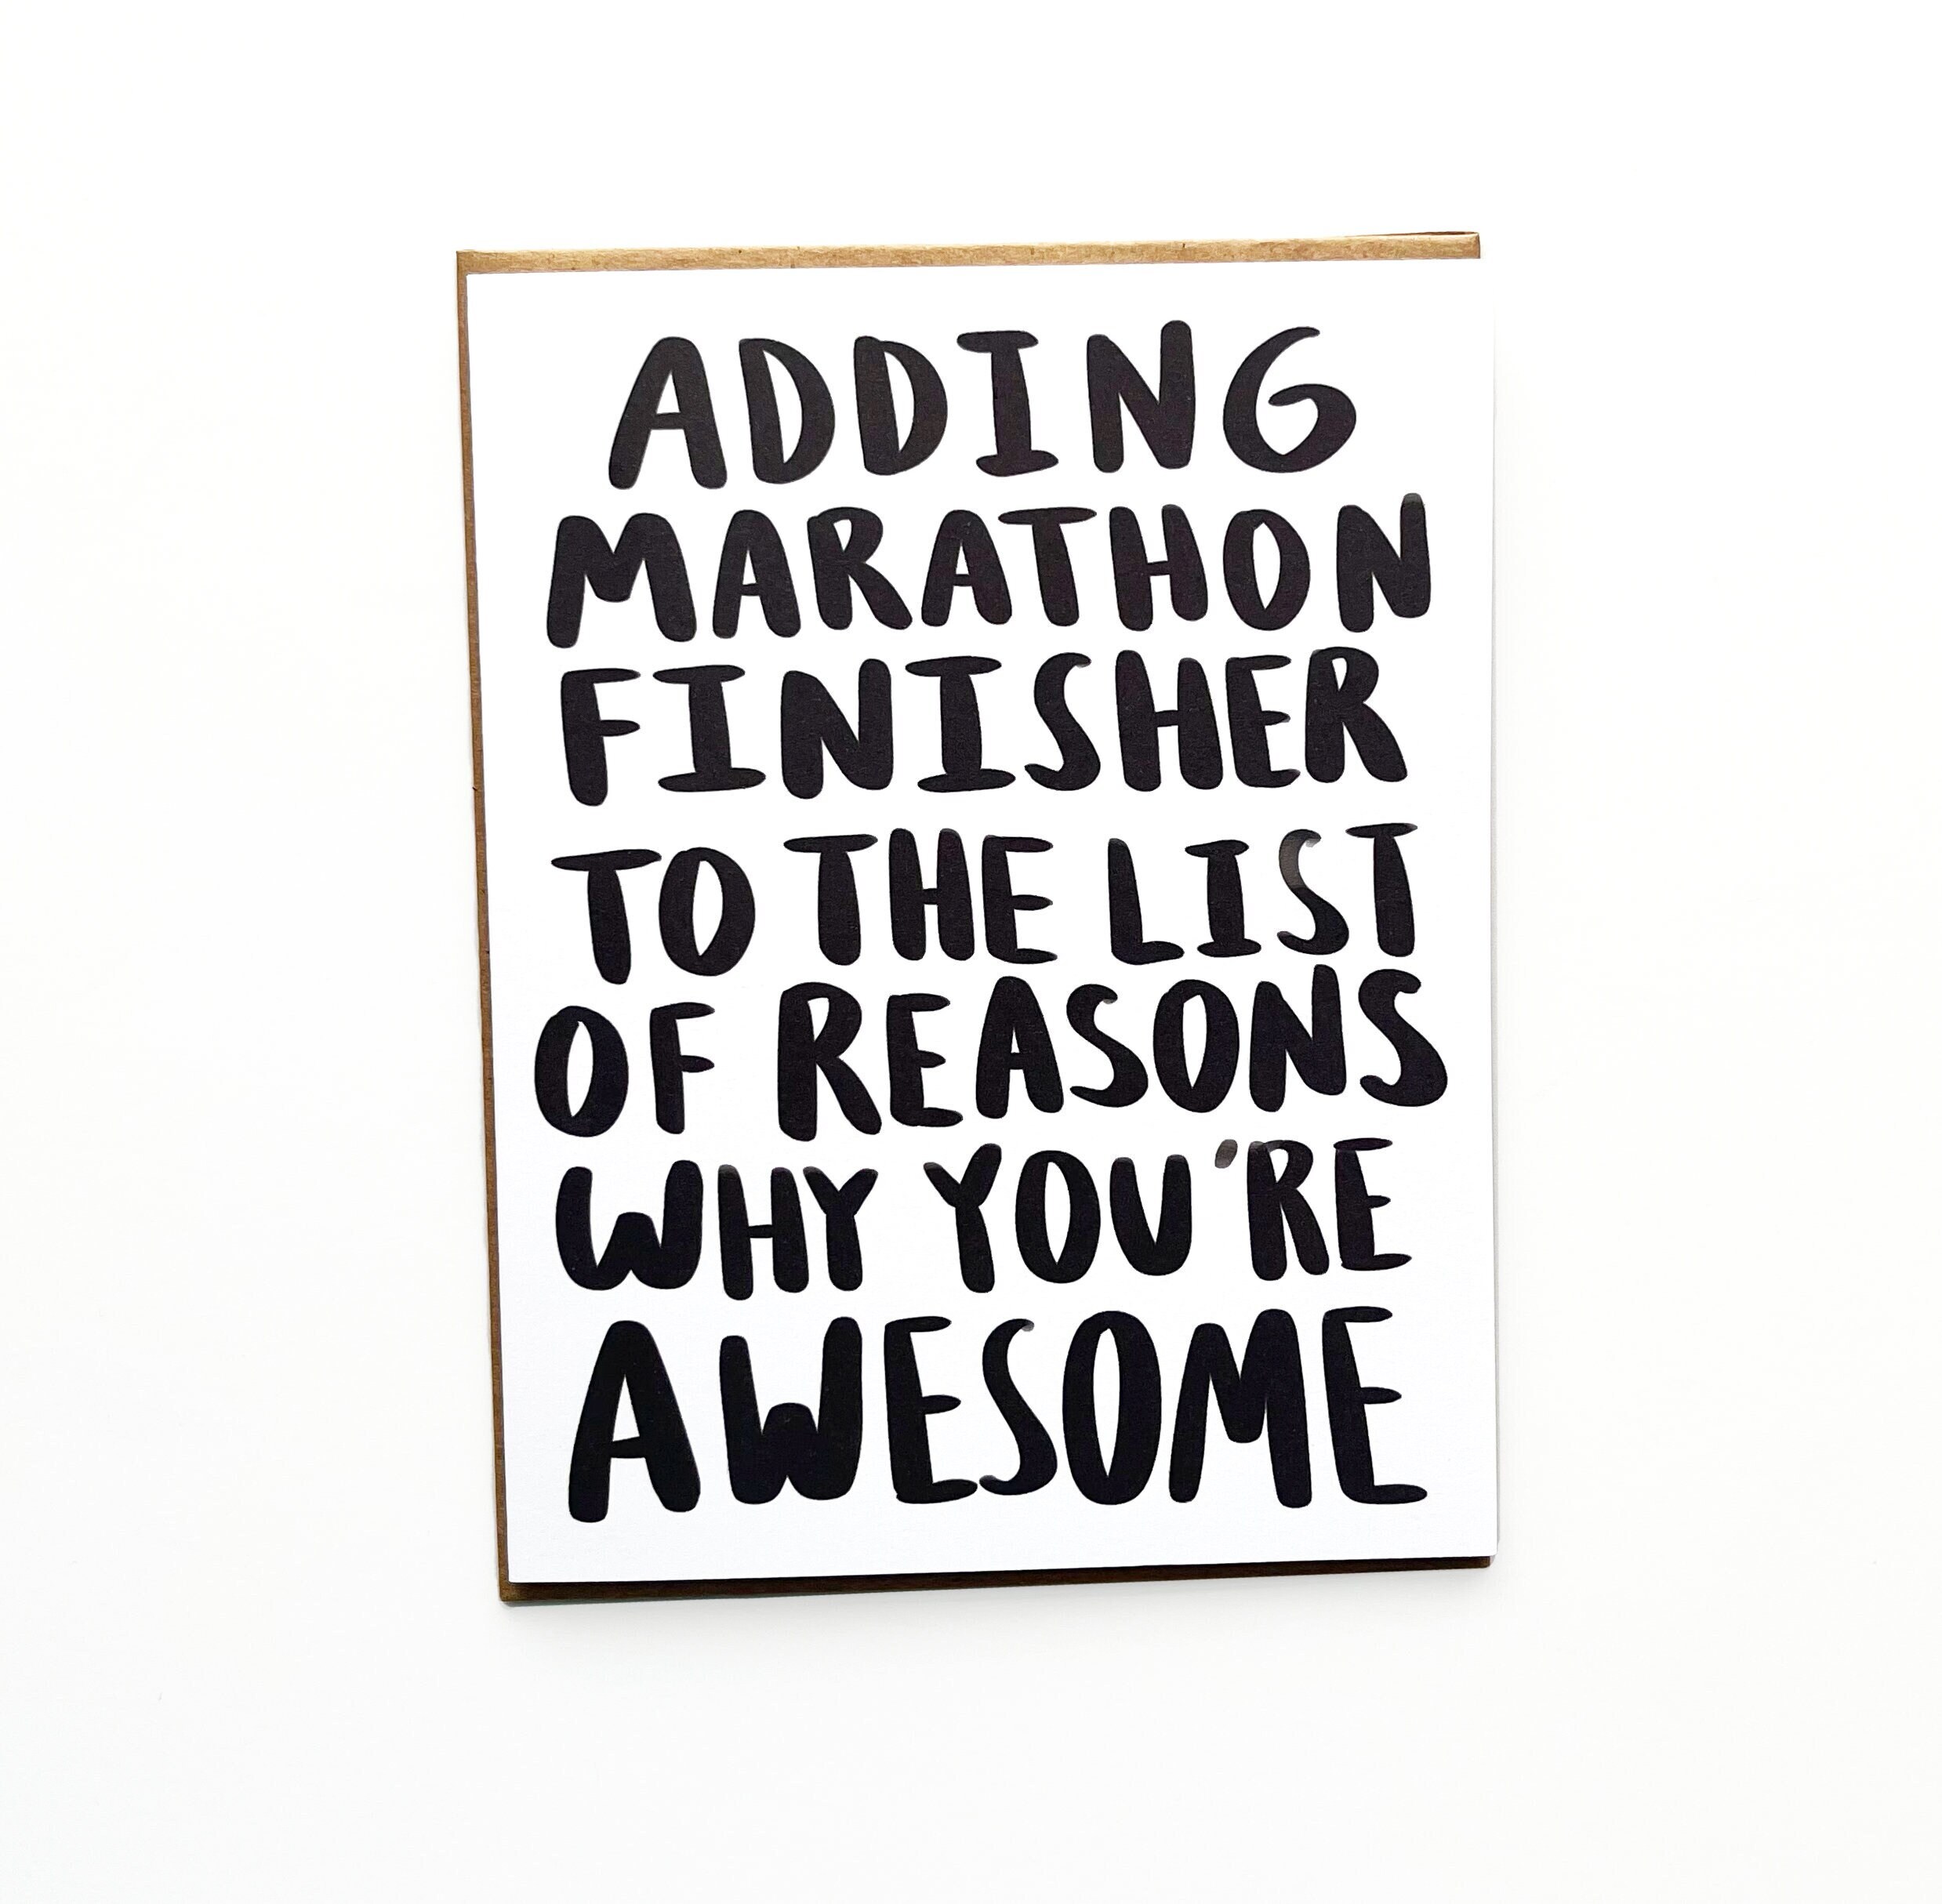 ADDING
MARATHON
FINISHER
TO THE LIST
OF REASONS
WHY YOU'RE
AWESOME